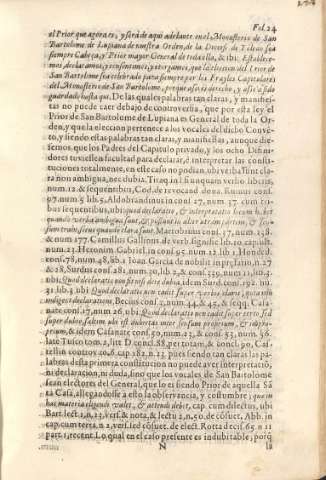 Fol. 24
el Prior que agora es, y será de aquí adelante en el Monasterio de San
Bartolome de Lupiana de nuestra Orden, de la Diocesi de Toledo sea
siempre Cabeça, y Prior mayor General de toda ella, & ibi: Establece-
mos, declaramos, y consentimos, y otorgamos, que la eleccion del Prior de
San Bartolome sea celebrada para siempre por los Frayles Capitulares
del Monasterio de San Bartolome, porque assi es derecho, y assi a sido
guardado hasta que. De las quales palabras tan claras, y manifies-
tas no puede caer debajo de controversia, que por esta ley el
Prior de San Bartolome de Lupiana es General de toda la Or-
den, y que la eleccion pertenece a los vocales del dicho Conve-
to, y siendo estas palabras tan claras, y manifiestas, aunque dié-
semos, que los Padres del Capitulo privado, y los ocho Difini-
dores tuviessen facultad para declarar, é interpretar las consti-
tuciones totalmente, en este caso no podian, ubi verba sunt cla-
ra non ambigua, nec dubia, Tiraq. in l. si unquam verbo libertis,
num. 12. & sequentibus, Cod. de revocand. dona. Ruinus conf.
97. num. 5. lib. 5. Aldobrandinus in conf. 27. num. 37. cum
tribus sequentibus, ubi
Camillus Gallinus de verb. signific. lib. 10. cap.
num. 23. Hieronim. Gabriel. in conf. 95. num. 12. lib. 1. Honded.
conf. 78. num. 48. lib. 1. Ioan. Garcia de nobilit. in
& 28. Surdus conf. 281. num. 30. lib. 2. & conf. 329. num. 11. lib. 3.
ubi: Quod declaratio non fit nisi sit dubia, idem Surd. conf. 192.
31. lib. 3. ubi: Quod declaratio non cadit super verbis claris,
indigent declaratione, Becius conf. 2. num. 44. & 45. & seqq. Cafa-
nate conf. 17. num. 26. ubi: Quod declaratio non cadit super certo sed
super dubio, & idem Cafanate conf. 50. num. 23. & conf. 53. num. 56.
late Tusco tom. 2. litt. D. concl. 88. per totam, & concl. 90. Caf-
tellin. controv. to. 6. cap. 182. n. 23. pues siendo tan claras las pa-
labras desta primera constitucion no puede aver interpretació,
ni declaracion, ni duda, sino que los vocales de San Bartolome
sean electores del General, que lo es siendo Prior de aquella Sá-
ta Casa, allegandosse a esto la observancia, y costumbre; quæ in
hac materia elegendi valet, & attendi debet, cap. cum dilectus, ubi
Bart. lect. 1. n. 23. vers. & nota, & lectu 2. n. 50. de consuet. Abb. in
cap. cum terra, n. 2. vers. sed consuet. de elect. Rotta decis. 65. n. 11
part. 1. recent. Lo qual en el caso presente es indubitable; porq
N
la